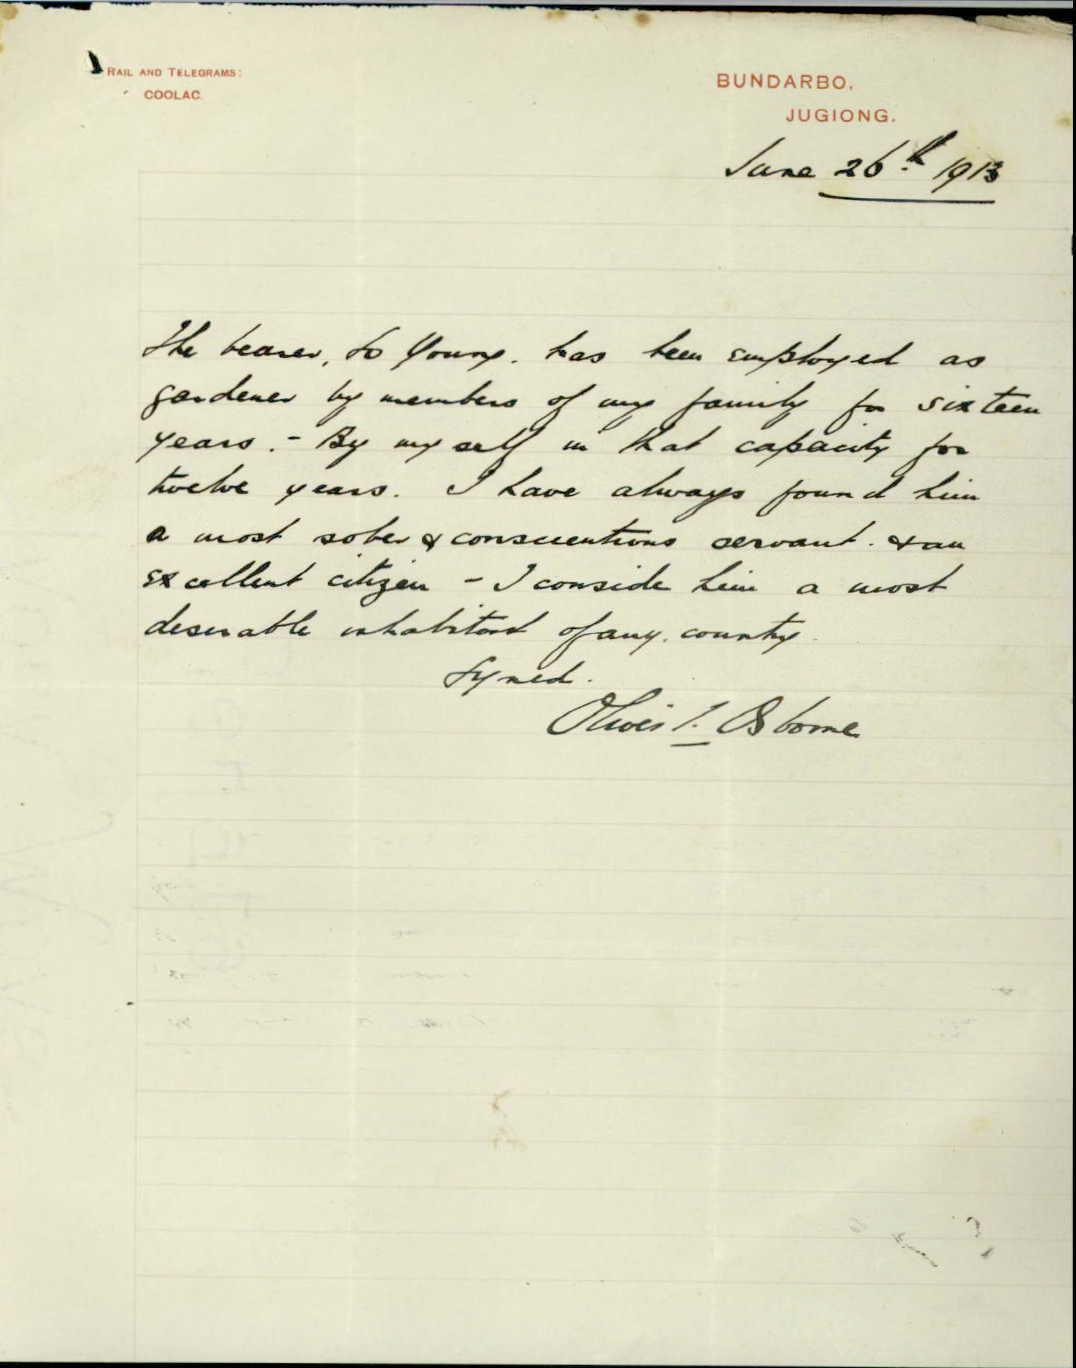 RAIL AND TELEGRAMS:
COOLAC.
BUNDARBO,
JUGIONG.
June 26th 1913
The bearer, So Young. has been employed as
gardener by members of my family for sixteen
years. - By my self in that capacity for
twelve years. I have always found him
a most sober & conscientious servant. & an
excellent citizen - I conside him a most
desirable inhabitant of any. country.
Signed.
Oliver Osborne